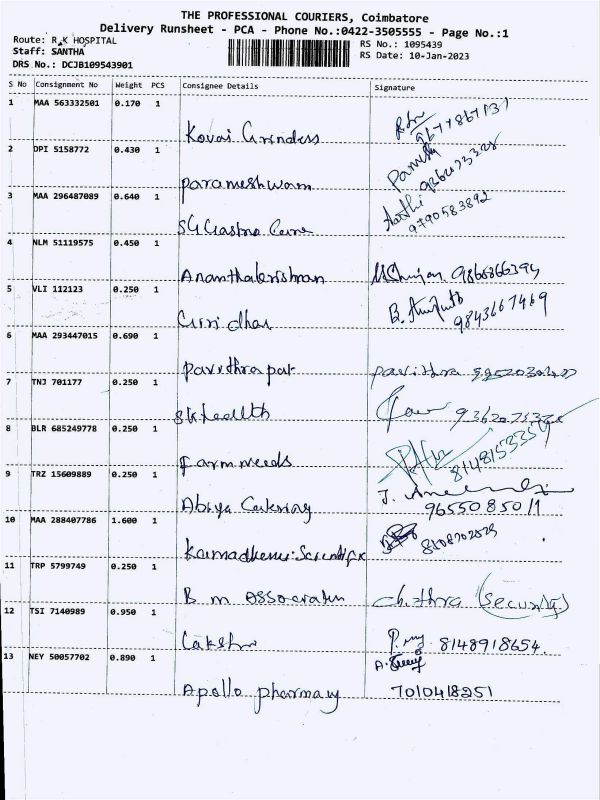 THE PROFESSIONAL COURIERS, Coimbatore
Delivery Runsheet - PCA - Phone No.:0422-3505555 - Page No.:1
Route: R.K HOSPITAL
RS No.: 1095439
Staff: SANTHA
RS Date: 10-Jan-2023
DRS No.: DCJB109543901
S No Consignment No Weight PCS Consignee Details Signature
1 MAA 563332501 0.170 1
Kovai Grinders
2 DPI 5158772 0.430 1
Parameshwaran
3 MAA 296487089 0.640 1
Aarthi
9790583892
SG Gastro Care
4 NLM 51119575 0.450 1
Ananthakrishnan
5 VLI 112123 0.250 1
9843667469
Giridhar
6 MAA 293447015 0.690 1
Pavithra pat Pavithra
7 TNJ 701177 0.250 1
Sk health
8 BLR 685249778 0.250 1
8148153359
Farm needs
9 TRZ 15609889 0.250 1
Abiya Catering 9655085011
10 MAA 288407786 1.600 1
Kamadhenu Scientific
11 TRP 5799749 0.250 1
B m Associates Chithra (Security)
12 TSI 7140989 0.950 1
Lakshmi 8148918654
13 NEY 50057702 0.890 1
Apollo pharmacy 7010418251